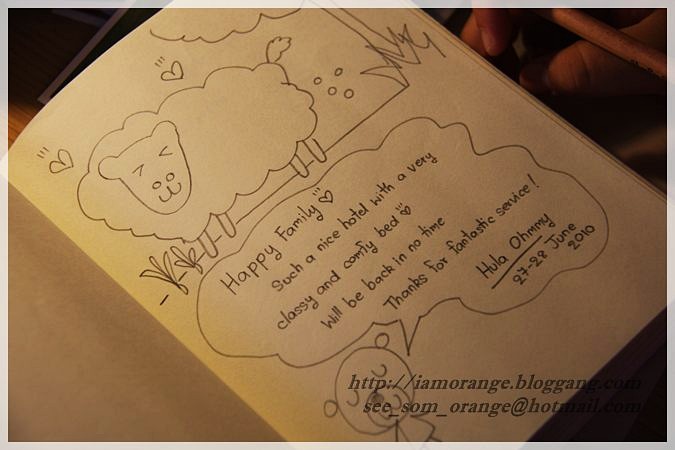 Happy Family
Such a nice hotel with a very
classy and comfy bed
Will be back in no time
Thanks for fantastic service!
Hula Ohmmy
27-28 June
2010
http://iamorange.bloggang.com
see_som_orange@hotmail.com